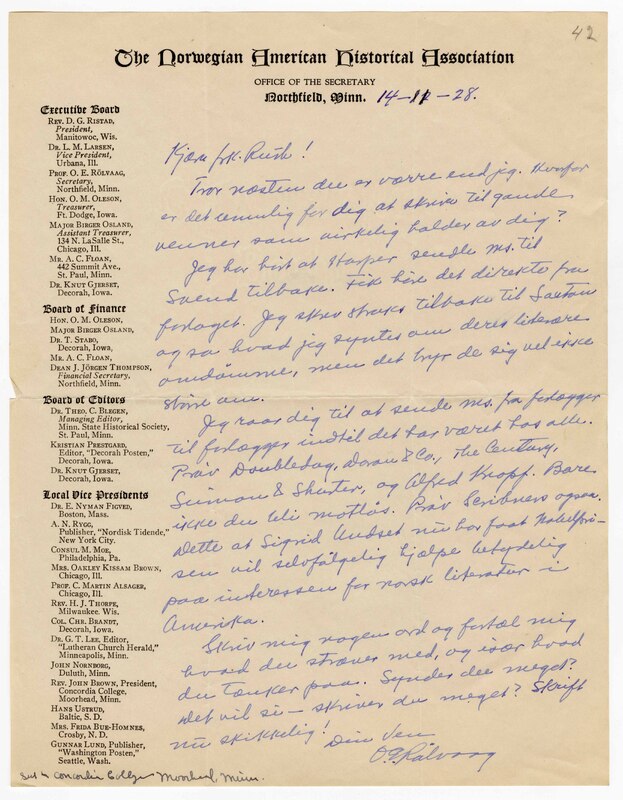 42
The Norwegian American Historical Association
OFFICE OF THE SECRETARY
Northfield, Minn. 14-11-28.
Executive Board
REV. D. G. RISTAD,
President,
Manitowoc, Wis.
DR. L. M. LARSEN,
Vice President,
Urbana, Ill.
PROF. O. E. RÖLVAAG,
Secretary,
Northfield, Minn.
HON. O. M. OLESON,
Treasurer,
Ft. Dodge, Iowa.
MAJOR BIRGER OSLAND,
Assistant Treasurer,
134 N. LaSalle St.,
Chicago, Ill.
MR. A. C. FLOAN,
442 Summit Ave.,
St. Paul, Minn.
DR. KNUT GJERSET,
Decorah, Iowa.
Board of Finance
HON. O. M. OLESON,
MAJOR BIRGER OSLAND,
DR. T. STABO,
Decorah, Iowa,
MR. A. C. FLOAN,
DEAN J. JÖRGEN THOMPSON,
Financial Secretary,
Northfield, Minn.
Board of Editors
DR. THEO. C. BLEGEN,
Managing Editor,
Minn. State Historical Society,
St. Paul, Minn.
KRISTIAN PRESTGARD,
Editor, "Decorah Posten,"
Decorah, Iowa.
DR. KNUT GJERSET,
Decorah, Iowa.
Local Vice Presidents
DR. E. NYMAN FIGVED,
Boston, Mass.
A. N. RYGG,
Publisher, "Nordisk Tidende,"
New York City.
CONSUL M. MOE,
Philadelphia, Pa.
MRS. OAKLEY KISSAM BROWN,
Chicago, Ill.
PROF. C. MARTIN ALSAGER,
Chicago, Ill.
REV. H. J. THORPE,
Milwaukee. Wis.
COL. CHR. BRANDT,
Decorah, Iowa.
DR. G. T. LEE, Editor,
"Lutheran Church Herald,"
Minneapolis, Minn.
JOHN NORNBORG,
Duluth, Minn.
REV. JOHN BROWN, President,
Concordia College,
Moorhead, Minn.
HANS USTRUD,
Baltic, S. D.
MRS. FRIDA BUE-HOMNES,
Crosby, N. D.
GUNNAR LUND, Publisher,
"Washington Posten,"
Seattle, Wash.
Kjære frk. Rush!
Tror næsten du er værre end jeg. Hvorfor
er det umulig for dig at skrive til gamle
venner som virkelig holder av dig?
Jeg har hørt at Harper sendte ms. til
Svend tilbake. Fik høre det direkte fra
forlaget. Jeg skrev straks tilbake til Saxton
og sa hvad jeg syntes om deres literære
omdømme, men det bryr de sig vel ikke
større om.
Jeg raar dig til at sende ms. fra forlægger
til forlægger indtil det har været hos alle.
Prøv Doubleday, Doran & Co, The Century,
Simon & Shuster, og Alfred Knopf. Bare
ikke du bli motløs. Prøv Scribners ogsaa.
Dette at Sigrid Undset nu har faat Nobelpri-
sen vil selvfølgelig hjælpe betydelig
paa interessen for norsk literatur i
Amerika.
Skriv mig nogen ord og fortæl mig
hvad du stræver med, og især hvad
du tænker paa. Synder du meget?
Det vil si — skriver du meget? Skrift
nu skikkelig!
Din ven
O E Rölvaag
Sent to Concordia College Moorhead, Minn.